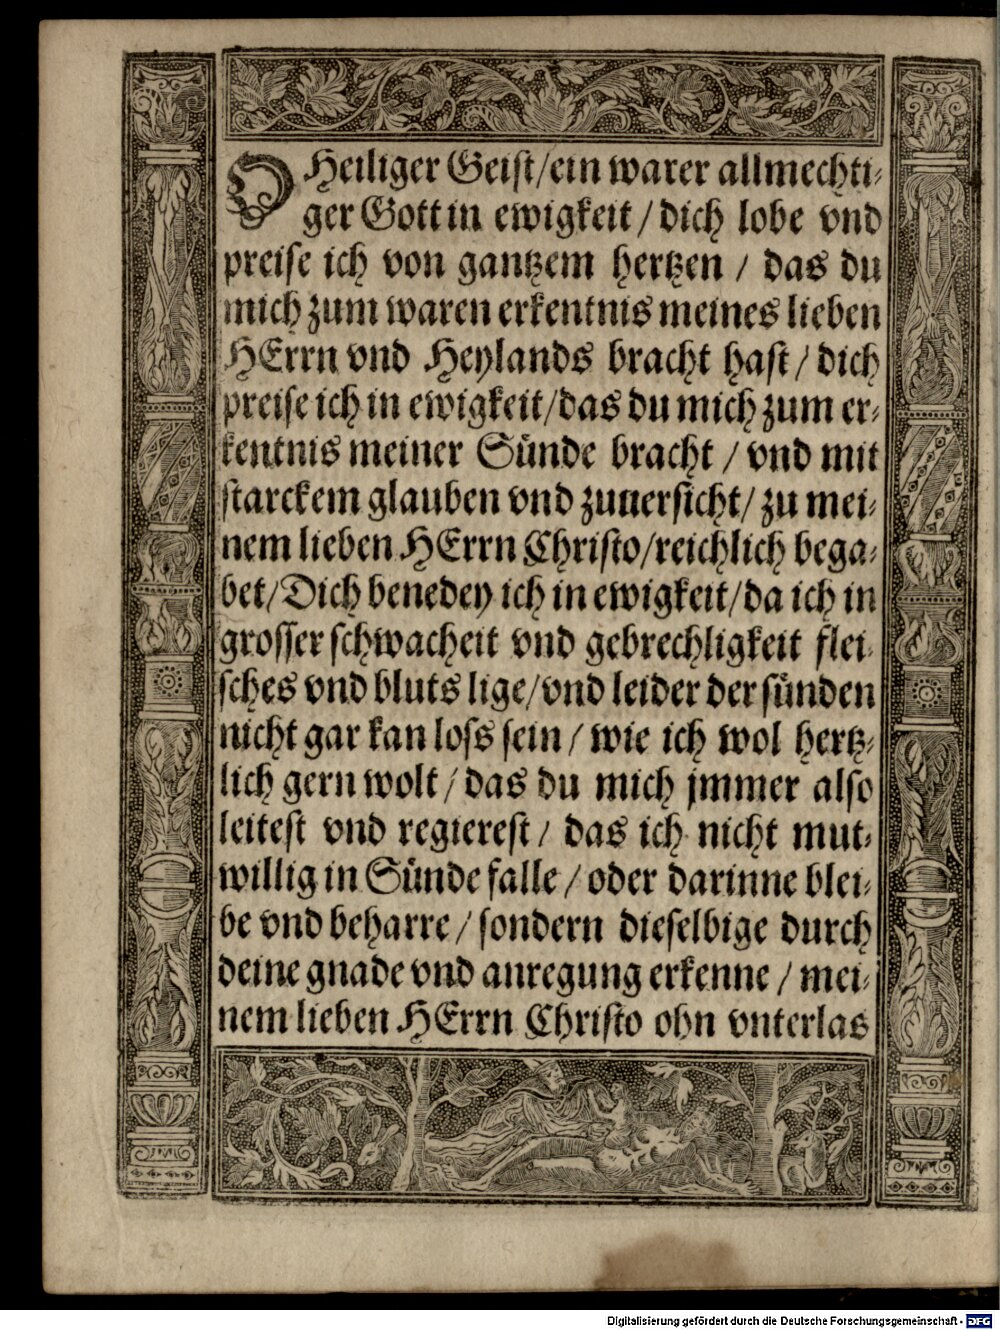 O Heiliger Geist/ein warer allmechti-
ger Gott in ewigkeit / dich lobe vnd
preise ich von gantzem hertzen / das du
mich zum waren erkentnis meines lieben
HErrn vnd Heylands bracht hast / dich
preise ich in ewigkeit/das du mich zum er-
kentnis meiner Sünde bracht / vnd mit
starckem glauben vnd zuuersicht/ zu mei-
nem lieben HErrn Christo/reichlich bega-
bet/Dich benedey ich in ewigkeit/da ich in
grosser schwacheit vnd gebrechligkeit flei-
sches vnd bluts lige/vnd leider der sünden
nicht gar kan loss sein / wie ich wol hertz-
lich gern wolt / das du mich jmmer also
leitest vnd regierest / das ich nicht mut-
willig in Sünde falle / oder darinne blei-
be vnd beharre / sondern dieselbige durch
deine gnade vnd anregung erkenne / mei-
nem lieben HErrn Christo ohn vnterlas
Digitalisierung gefördert durch die Deutsche Forschungsgemeinschaft - DFG